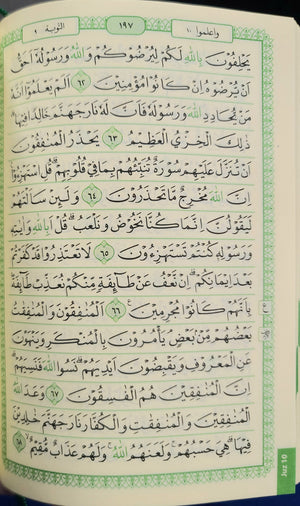 التوبة ٩ ١٩٧ واعلموا ١٠
يَحْلِفُونَ بِاللَّهِ لَكُمْ لِيُرْضُوكُمْ وَاللَّهُ وَرَسُولُهُ أَحَقُّ
أَنْ يُرْضُوهُ إِنْ كَانُوا مُؤْمِنِينَ ٦٢ أَلَمْ يَعْلَمُوا أَنَّهُ
مَنْ يُحَادِدِ اللَّهَ وَرَسُولَهُ فَأَنَّ لَهُ نَارَ جَهَنَّمَ خَالِدًا فِيهَا
ذَلِكَ الْخِزْيُ الْعَظِيمُ ٦٣ يَحْذَرُ الْمُنَافِقُونَ
أَنْ تُنَزَّلَ عَلَيْهِمْ سُورَةٌ تُنَبِّئُهُمْ بِمَا فِي قُلُوبِهِمْ قُلِ اسْتَهْزِءُوا
إِنَّ اللَّهَ مُخْرِجٌ مَا تَحْذَرُونَ ٦٤ وَلَئِنْ سَأَلْتَهُمْ
لَيَقُولُنَّ إِنَّمَا كُنَّا نَخُوضُ وَنَلْعَبُ قُلْ أَبِاللَّهِ وَآيَاتِهِ
وَرَسُولِهِ كُنْتُمْ تَسْتَهْزِءُونَ ٦٥ لَا تَعْتَذِرُوا قَدْ كَفَرْتُمْ
بَعْدَ إِيمَانِكُمْ إِنْ نَعْفُ عَنْ طَائِفَةٍ مِنْكُمْ نُعَذِّبْ طَائِفَةً
بِأَنَّهُمْ كَانُوا مُجْرِمِينَ ٦٦ الْمُنَافِقُونَ وَالْمُنَافِقَاتُ
بَعْضُهُمْ مِنْ بَعْضٍ يَأْمُرُونَ بِالْمُنْكَرِ وَيَنْهَوْنَ
عَنِ الْمَعْرُوفِ وَيَقْبِضُونَ أَيْدِيَهُمْ نَسُوا اللَّهَ فَنَسِيَهُمْ
إِنَّ الْمُنَافِقِينَ هُمُ الْفَاسِقُونَ ٦٧ وَعَدَ اللَّهُ
الْمُنَافِقِينَ وَالْمُنَافِقَاتِ وَالْكُفَّارَ نَارَ جَهَنَّمَ خَالِدِينَ
فِيهَا هِيَ حَسْبُهُمْ وَلَعَنَهُمُ اللَّهُ وَلَهُمْ عَذَابٌ مُقِيمٌ ٦٨
Juz 10